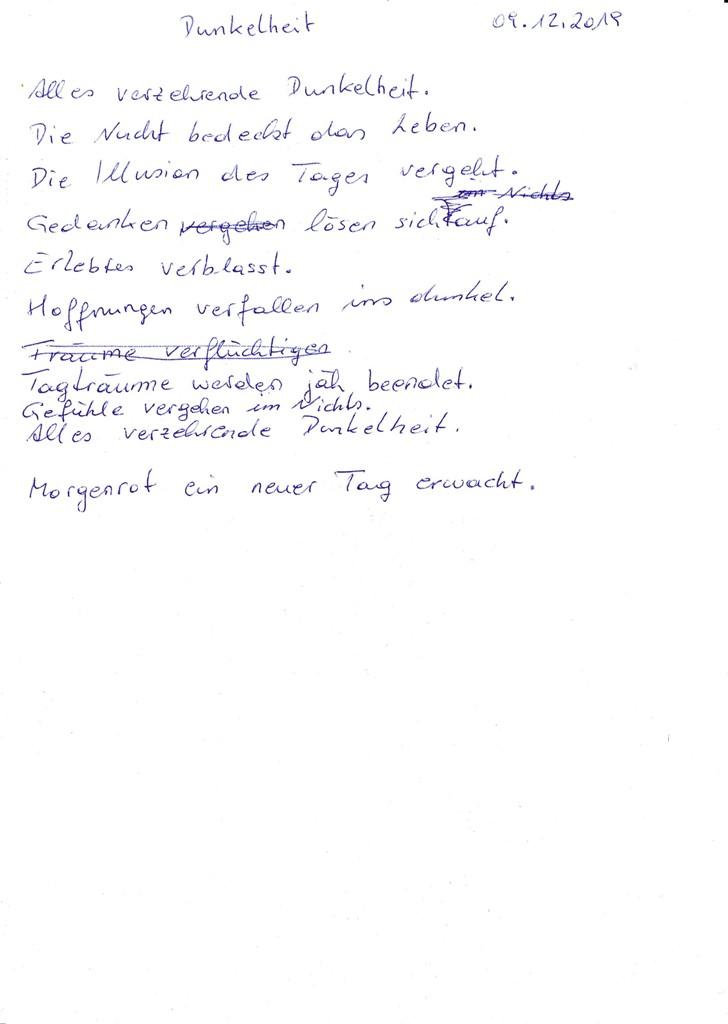 Dunkelheit 09.12.2019
Alles verzehrende Dunkelheit.
Die Nacht bedeckt das Leben.
Die Illusion des Tages vergeht.
im Nichts
Gedanken vergehen lösen sich auf.
Erlebtes verblasst.
Hoffnungen verfallen ins dunkel.
Träume verflüchtigen
Tagträume werden jäh beendet.
Gefühle vergehen im Nichts.
Alles verzehrende Dunkelheit.
Morgenrot ein neuer Tag erwacht.